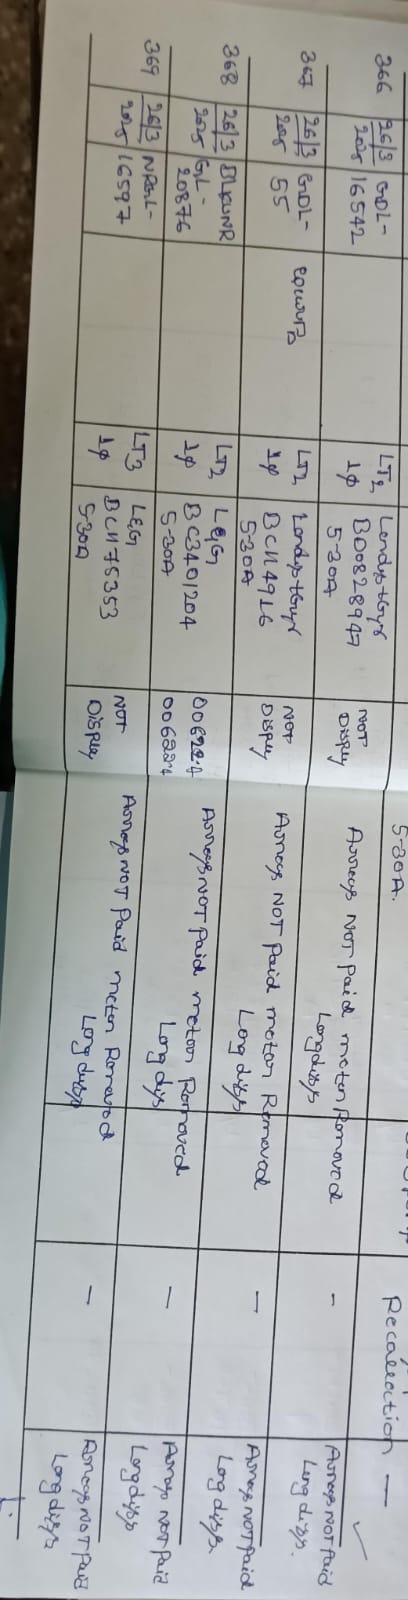 5-30A.
Recallection —
366 26/3 2025 GDL- 16542
LT2 1φ
Landys+Gyr BD0828947 5-30A
NOT Disply
Arrears NOT Paid meter Removed Longdiss
—
Arrears NOT Paid Longdiss.
367 26/3 2025 GDL- 55
LT2 1φ
Landys+Gyr BC114916 5-30A
NOT Disply
Arrears NOT Paid meter Removed Longdiss
—
Arrears NOT Paid Longdiss.
368 26/3 2025 BLKUNR GL- 20876
LT2 1φ
L&G BC3401204 5-30A
Arrears NOT Paid meter Removed Longdiss
—
Arrears NOT Paid Longdiss
369 26/3 2025 NRGL- 16597
LT3 1φ
L&G BC1175353 5-30A
NOT Disply
Arrears NOT Paid meter Removed Longdiss
—
Arrears NOT Paid Longdiss